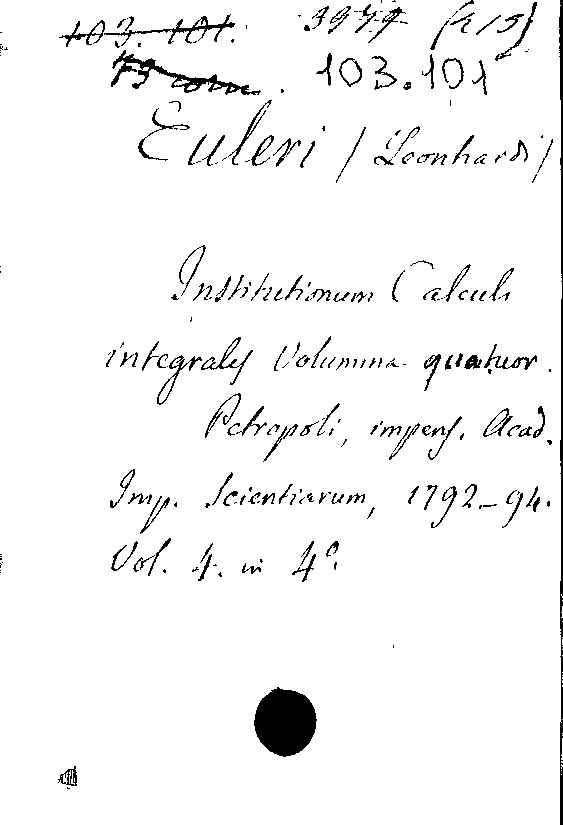 103. 101.
103.101
Euleri / Leonhardi /
Institutionum Calculi
integralis Volumina quatuor.
Petropoli, impens. Acad.
Imp. Scientiarum, 1792-94.
Vol. 4. in 4º.